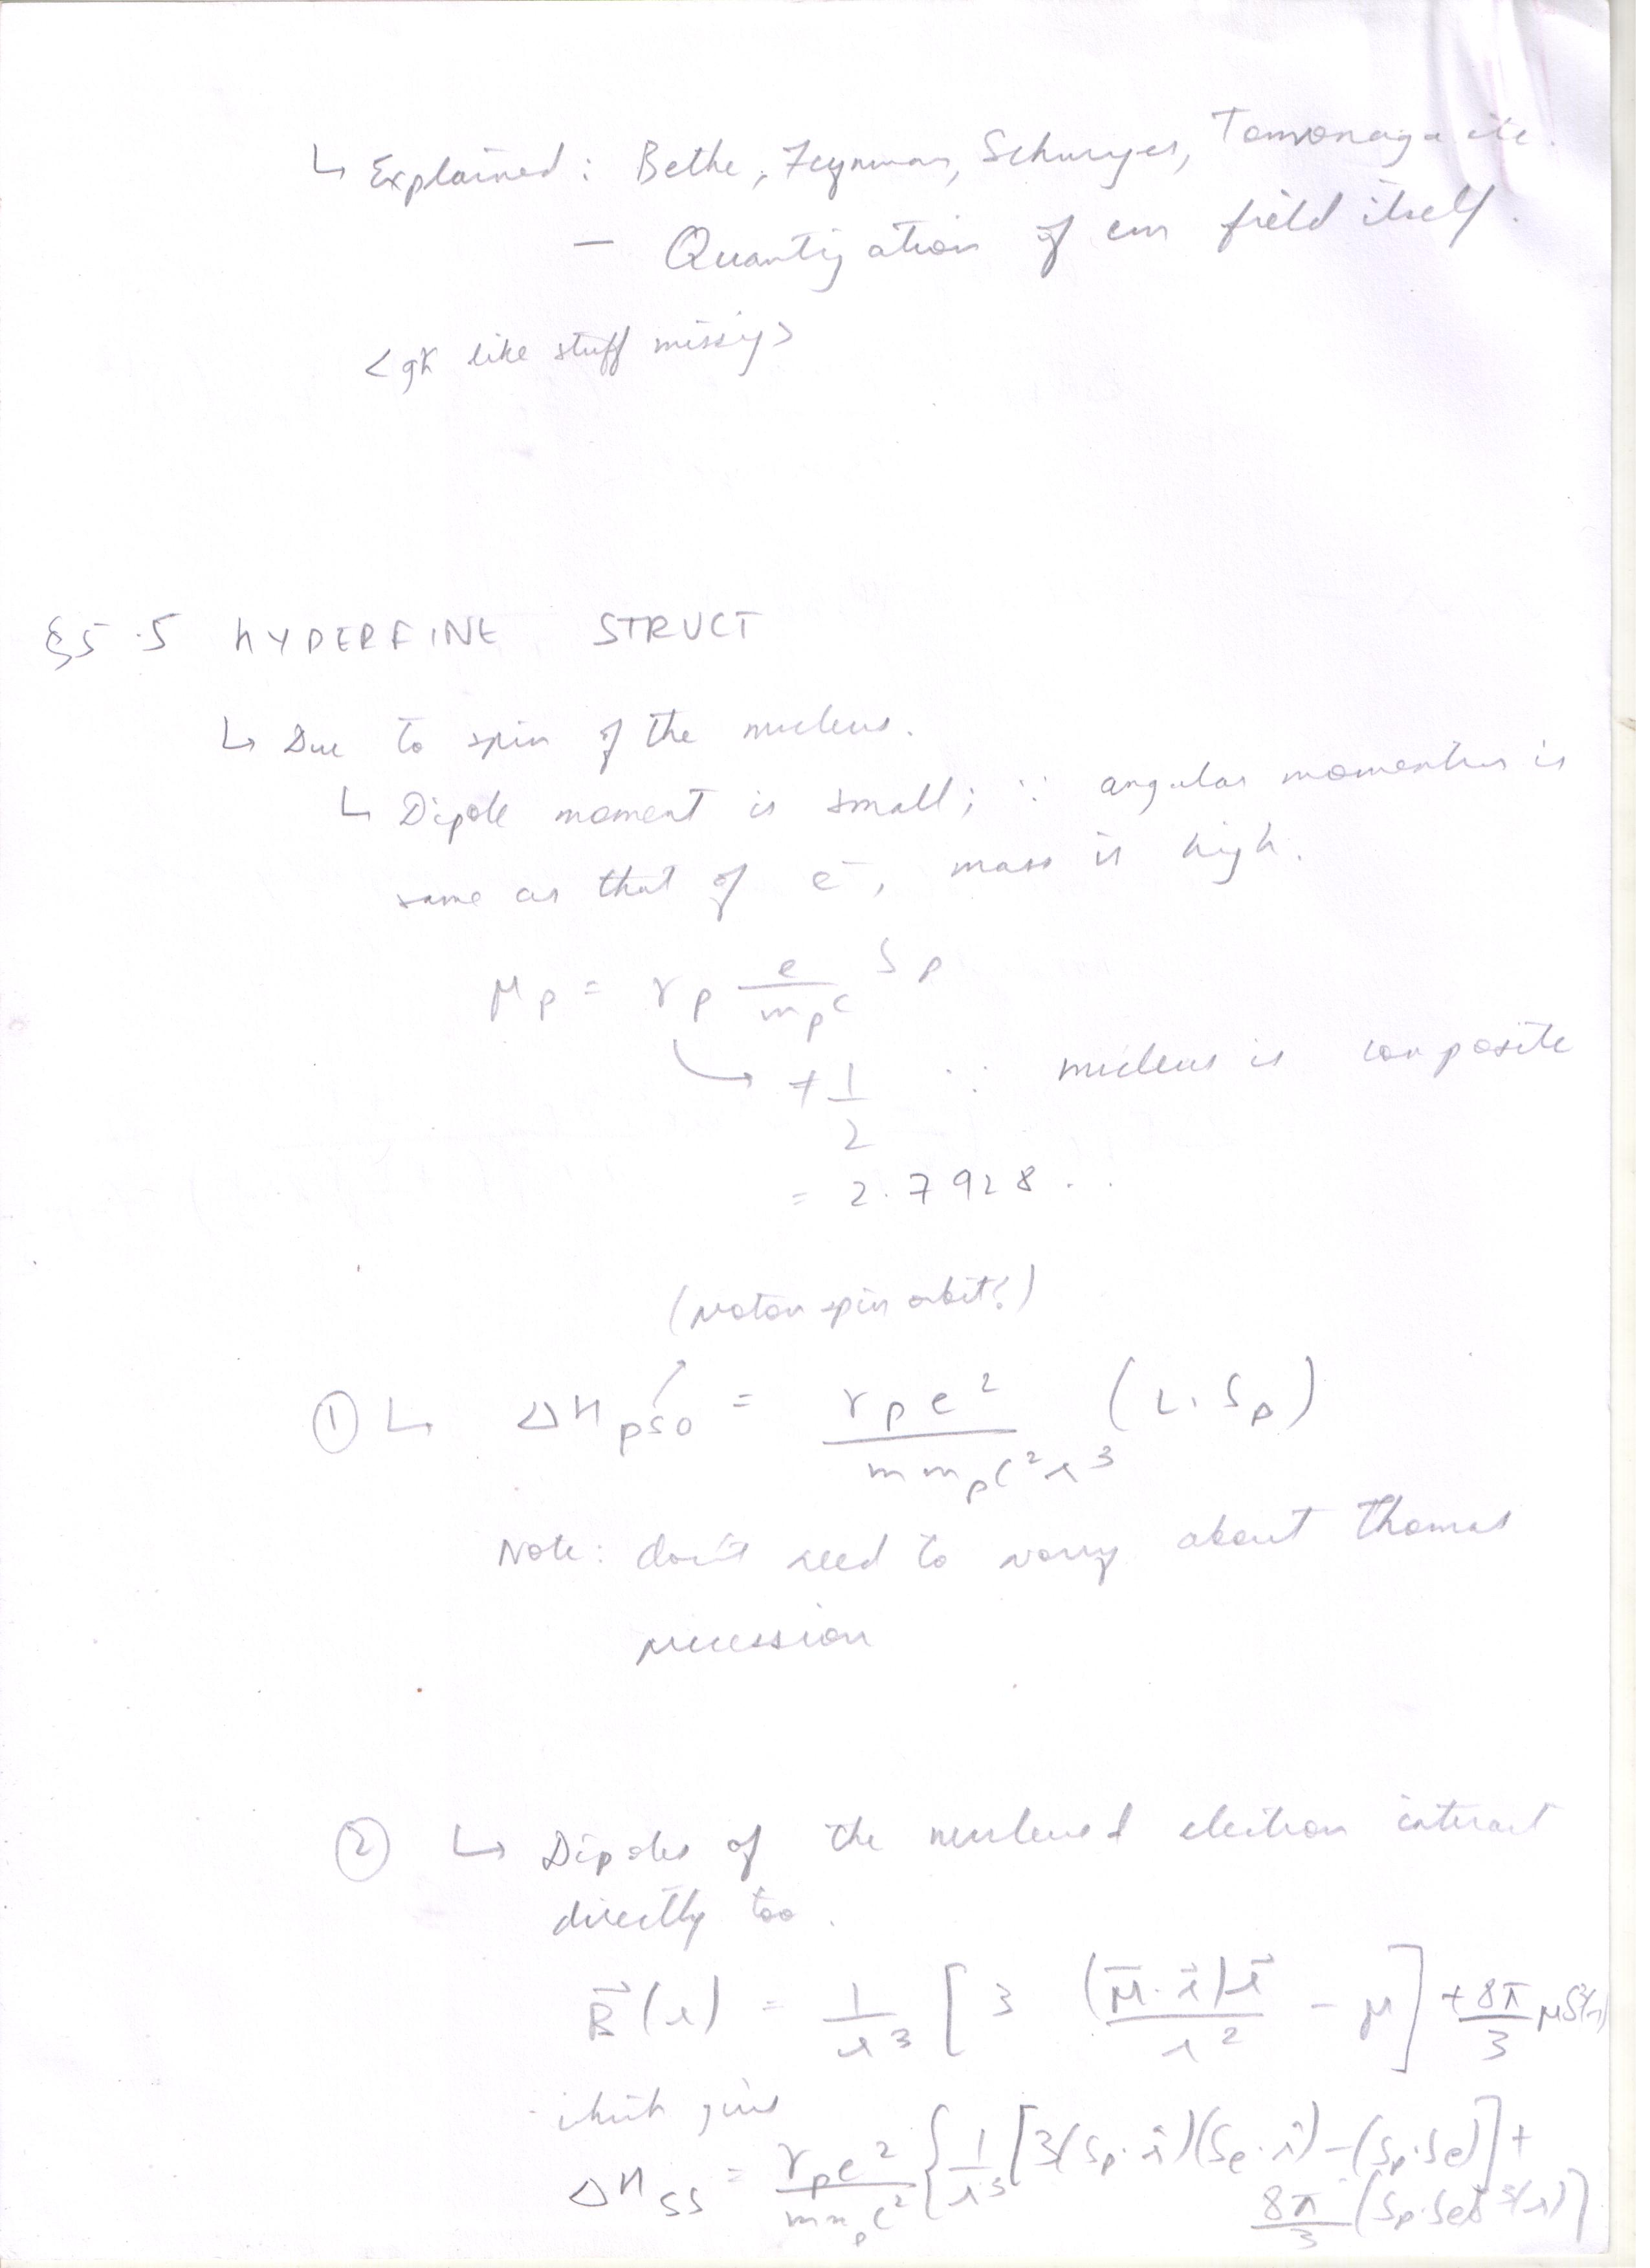 ↳ Explained : Bethe, Feynman, Schwinger, Tomonaga etc.
— Quantization of em field itself.
<gk like stuff missing>
§5.5 HYPERFINE STRUCT
↳ Due to spin of the nucleus.
↳ Dipole moment is small; ∵ angular momentum is
same as that of e⁻, mass is high.
μ_p = γ_p \frac{e}{m_p c} S_p
↳ ≠ \frac{1}{2} ∵ nucleus is composite
= 2.7928..
(proton spin orbit?)
① ↳ ΔH_{pso} = \frac{γ_p e²}{m m_p c² r³} (L · S_p)
Note: don't need to worry about Thomas
precession
② ↳ Dipoles of the nucleus & electron interact
directly too.
\vec{B}(r) = \frac{1}{r³} [3 \frac{(\vec{μ}·\vec{r})\vec{r}}{r²} - μ] + \frac{8π}{3} μ δ³(r)
which gives
ΔH_{ss} = \frac{γ_p e²}{m m_p c²} { \frac{1}{r³} [3(S_p·\hat{r})(S_e·\hat{r}) - (S_p·S_e)] +
\frac{8π}{3} (S_p·S_e) δ³(r) }